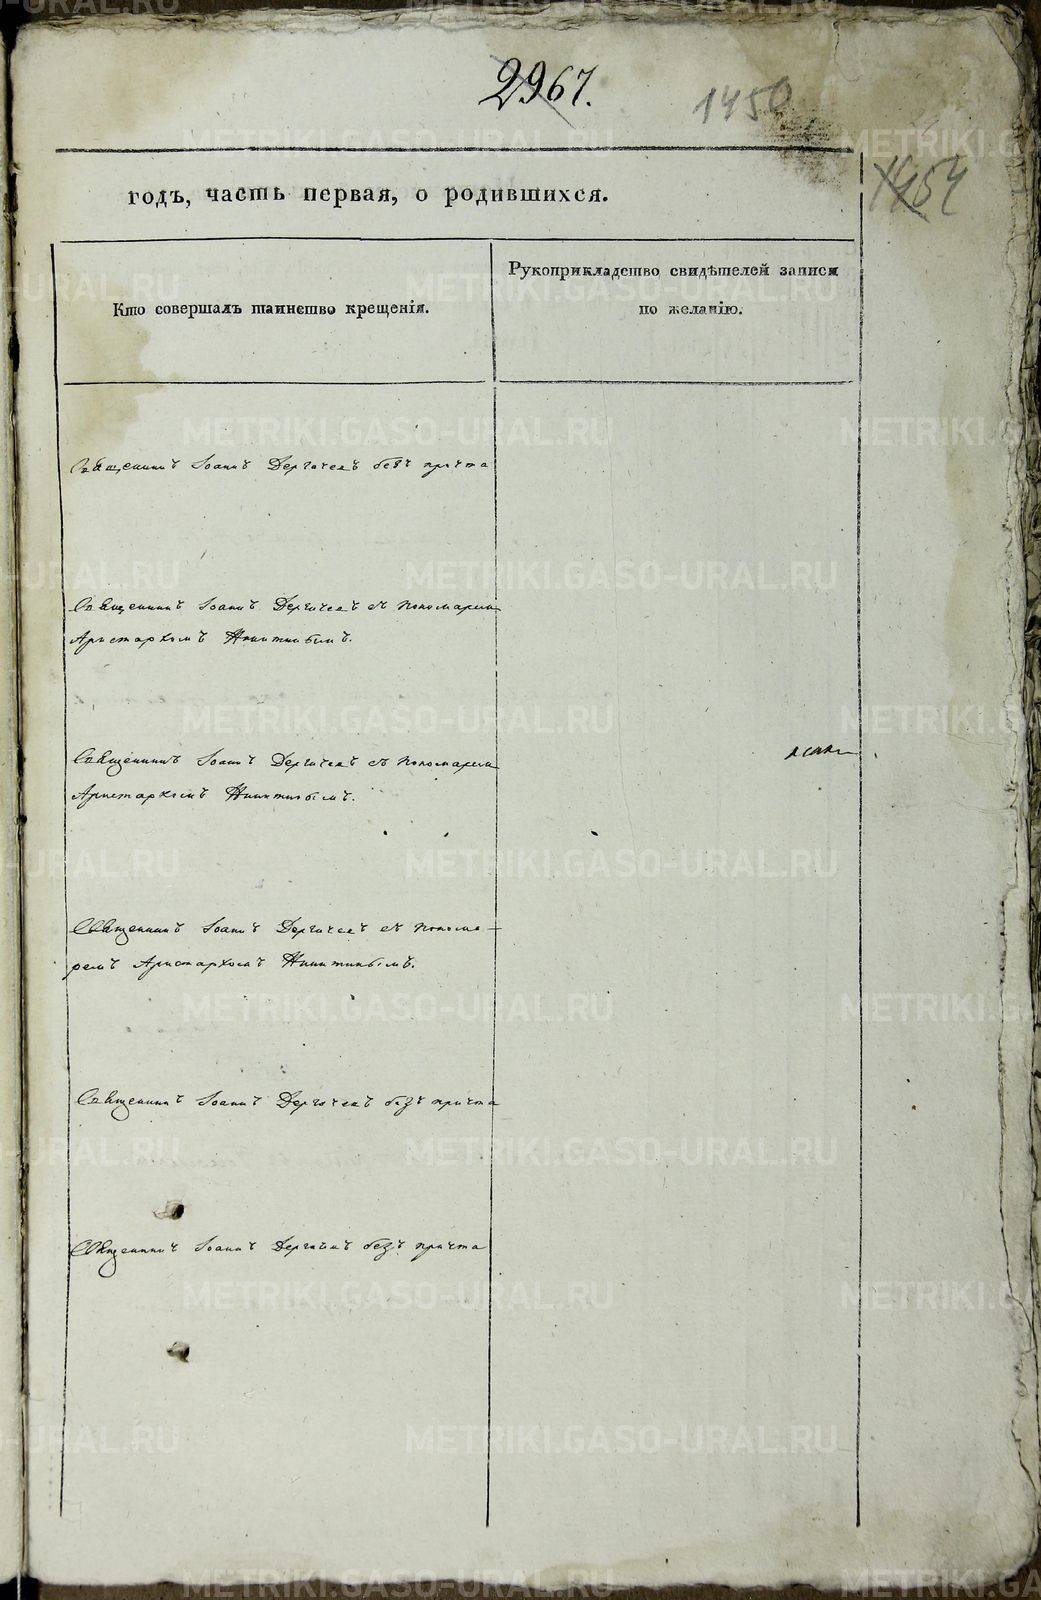 2967.
1450
1454
годъ, часть первая, о родившихся.
Кто совершалъ таинство крещенія.
Рукоприкладство свидѣтелей записи
по желанію.
Священникъ Іоаннъ Дергачевъ безъ причта
Священникъ Іоаннъ Дергачевъ съ Пономаремъ
Аристархомъ Никитинымъ.
Священникъ Іоаннъ Дергачевъ съ Пономаремъ
Аристархомъ Никитинымъ.
Священникъ Іоаннъ Дергачевъ съ Понома-
ремъ Аристархомъ Никитинымъ.
Священникъ Іоаннъ Дергачевъ безъ причта
Священникъ Іоаннъ Дергачевъ безъ причта
METRIKI.GASO-URAL.RU